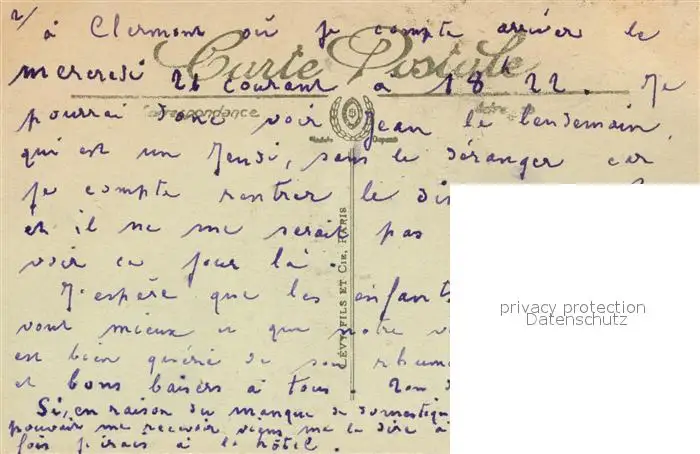 2/
à Clermont où je compte arriver le
Carte Postale
mercredi 26 courant à 18h22. Je
Correspondance
pourrai donc voir Jean le lendemain,
qui est un Jeudi, sans le déranger car
je compte rentrer le
et il ne me serait pas
voir ce jour là.
J'espère que les enfants
vont mieux et que notre
est bien guérie de son rhume
et bons baisers à tous.
Si, en raison du manque de
pouvoir me recevoir viens me le dire à
fois j'irais à l'hôtel.
LÉVY FILS ET CIE, PARIS
privacy protection
Datenschutz